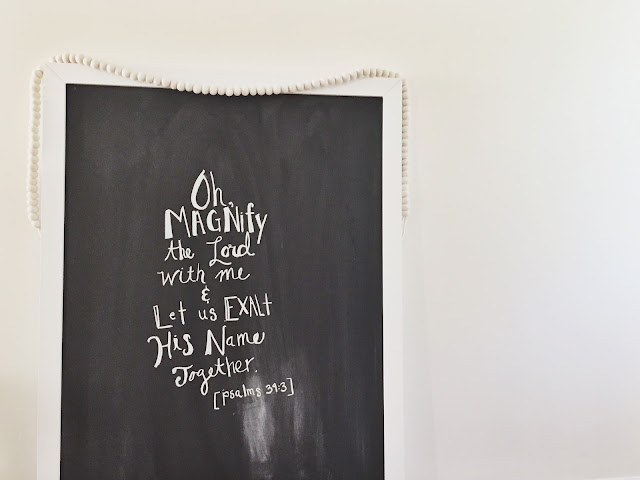 Oh,
MAGNify
the Lord
with me
&
Let us EXAlt
His Name
Together.
[psalms 34:3]